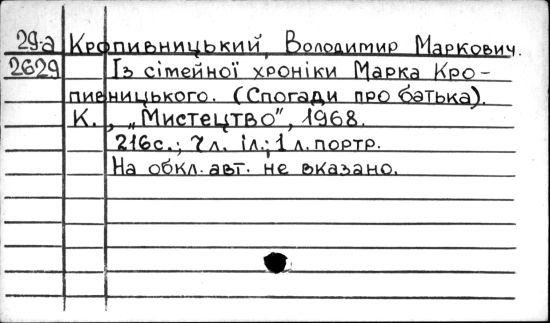 29-а Кропивницький, Володимир Маркович.
2629 Із сімейної хроніки Марка Кро-
пивницького. (Спогади про батька).
К., „Мистецтво", 1968.
216с.; 7л. іл.; 1 л. портр.
На обкл. авт. не вказано.